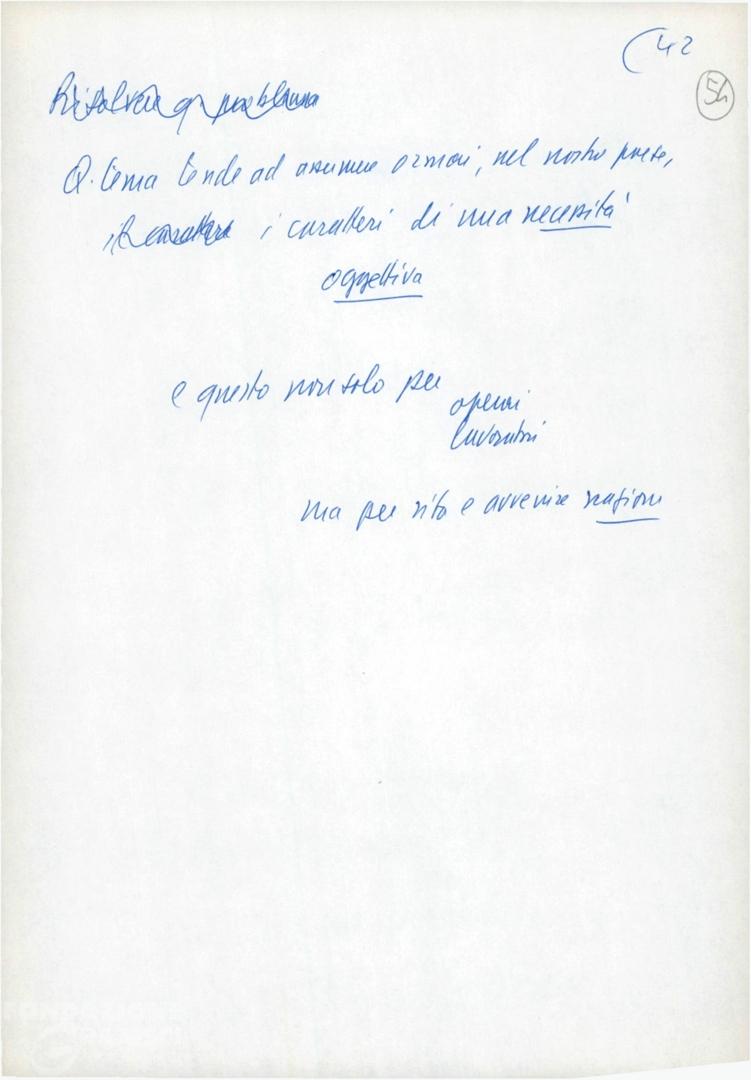 (42
54
Risolvere q. problema
Q. tema tende ad assumere ormai, nel nostro paese,
il carattere i caratteri di una necessità
oggettiva
e questo non solo per
operai
lavoratori
ma per vita e avvenire nazione
FONDAZIONE